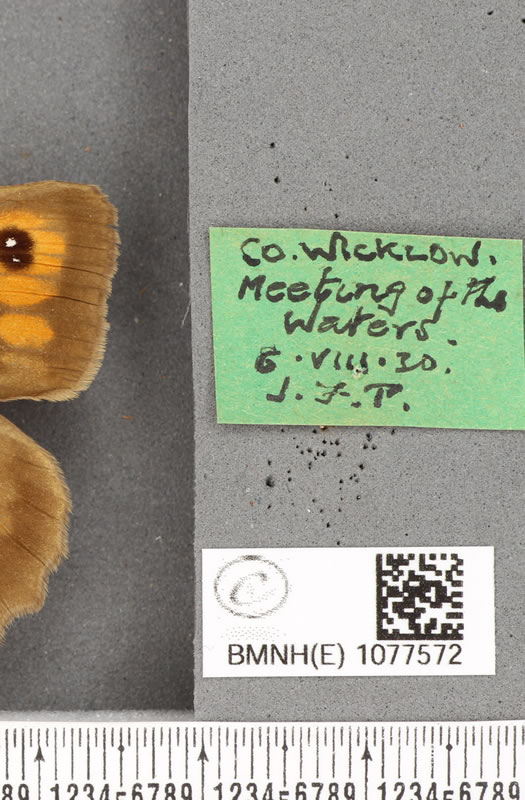 Co. Wicklow.
Meeting of the
Waters.
6.VIII.30.
J.F.P.
C
BMNH(E) 1077572
89 123456789 123456789 123456789